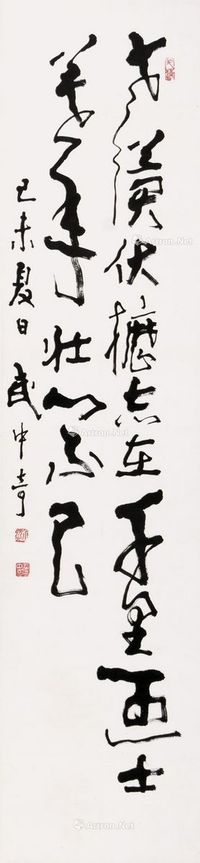 老驥伏櫪志在千里烈士
暮年壯心不已
己未夏日武中奇